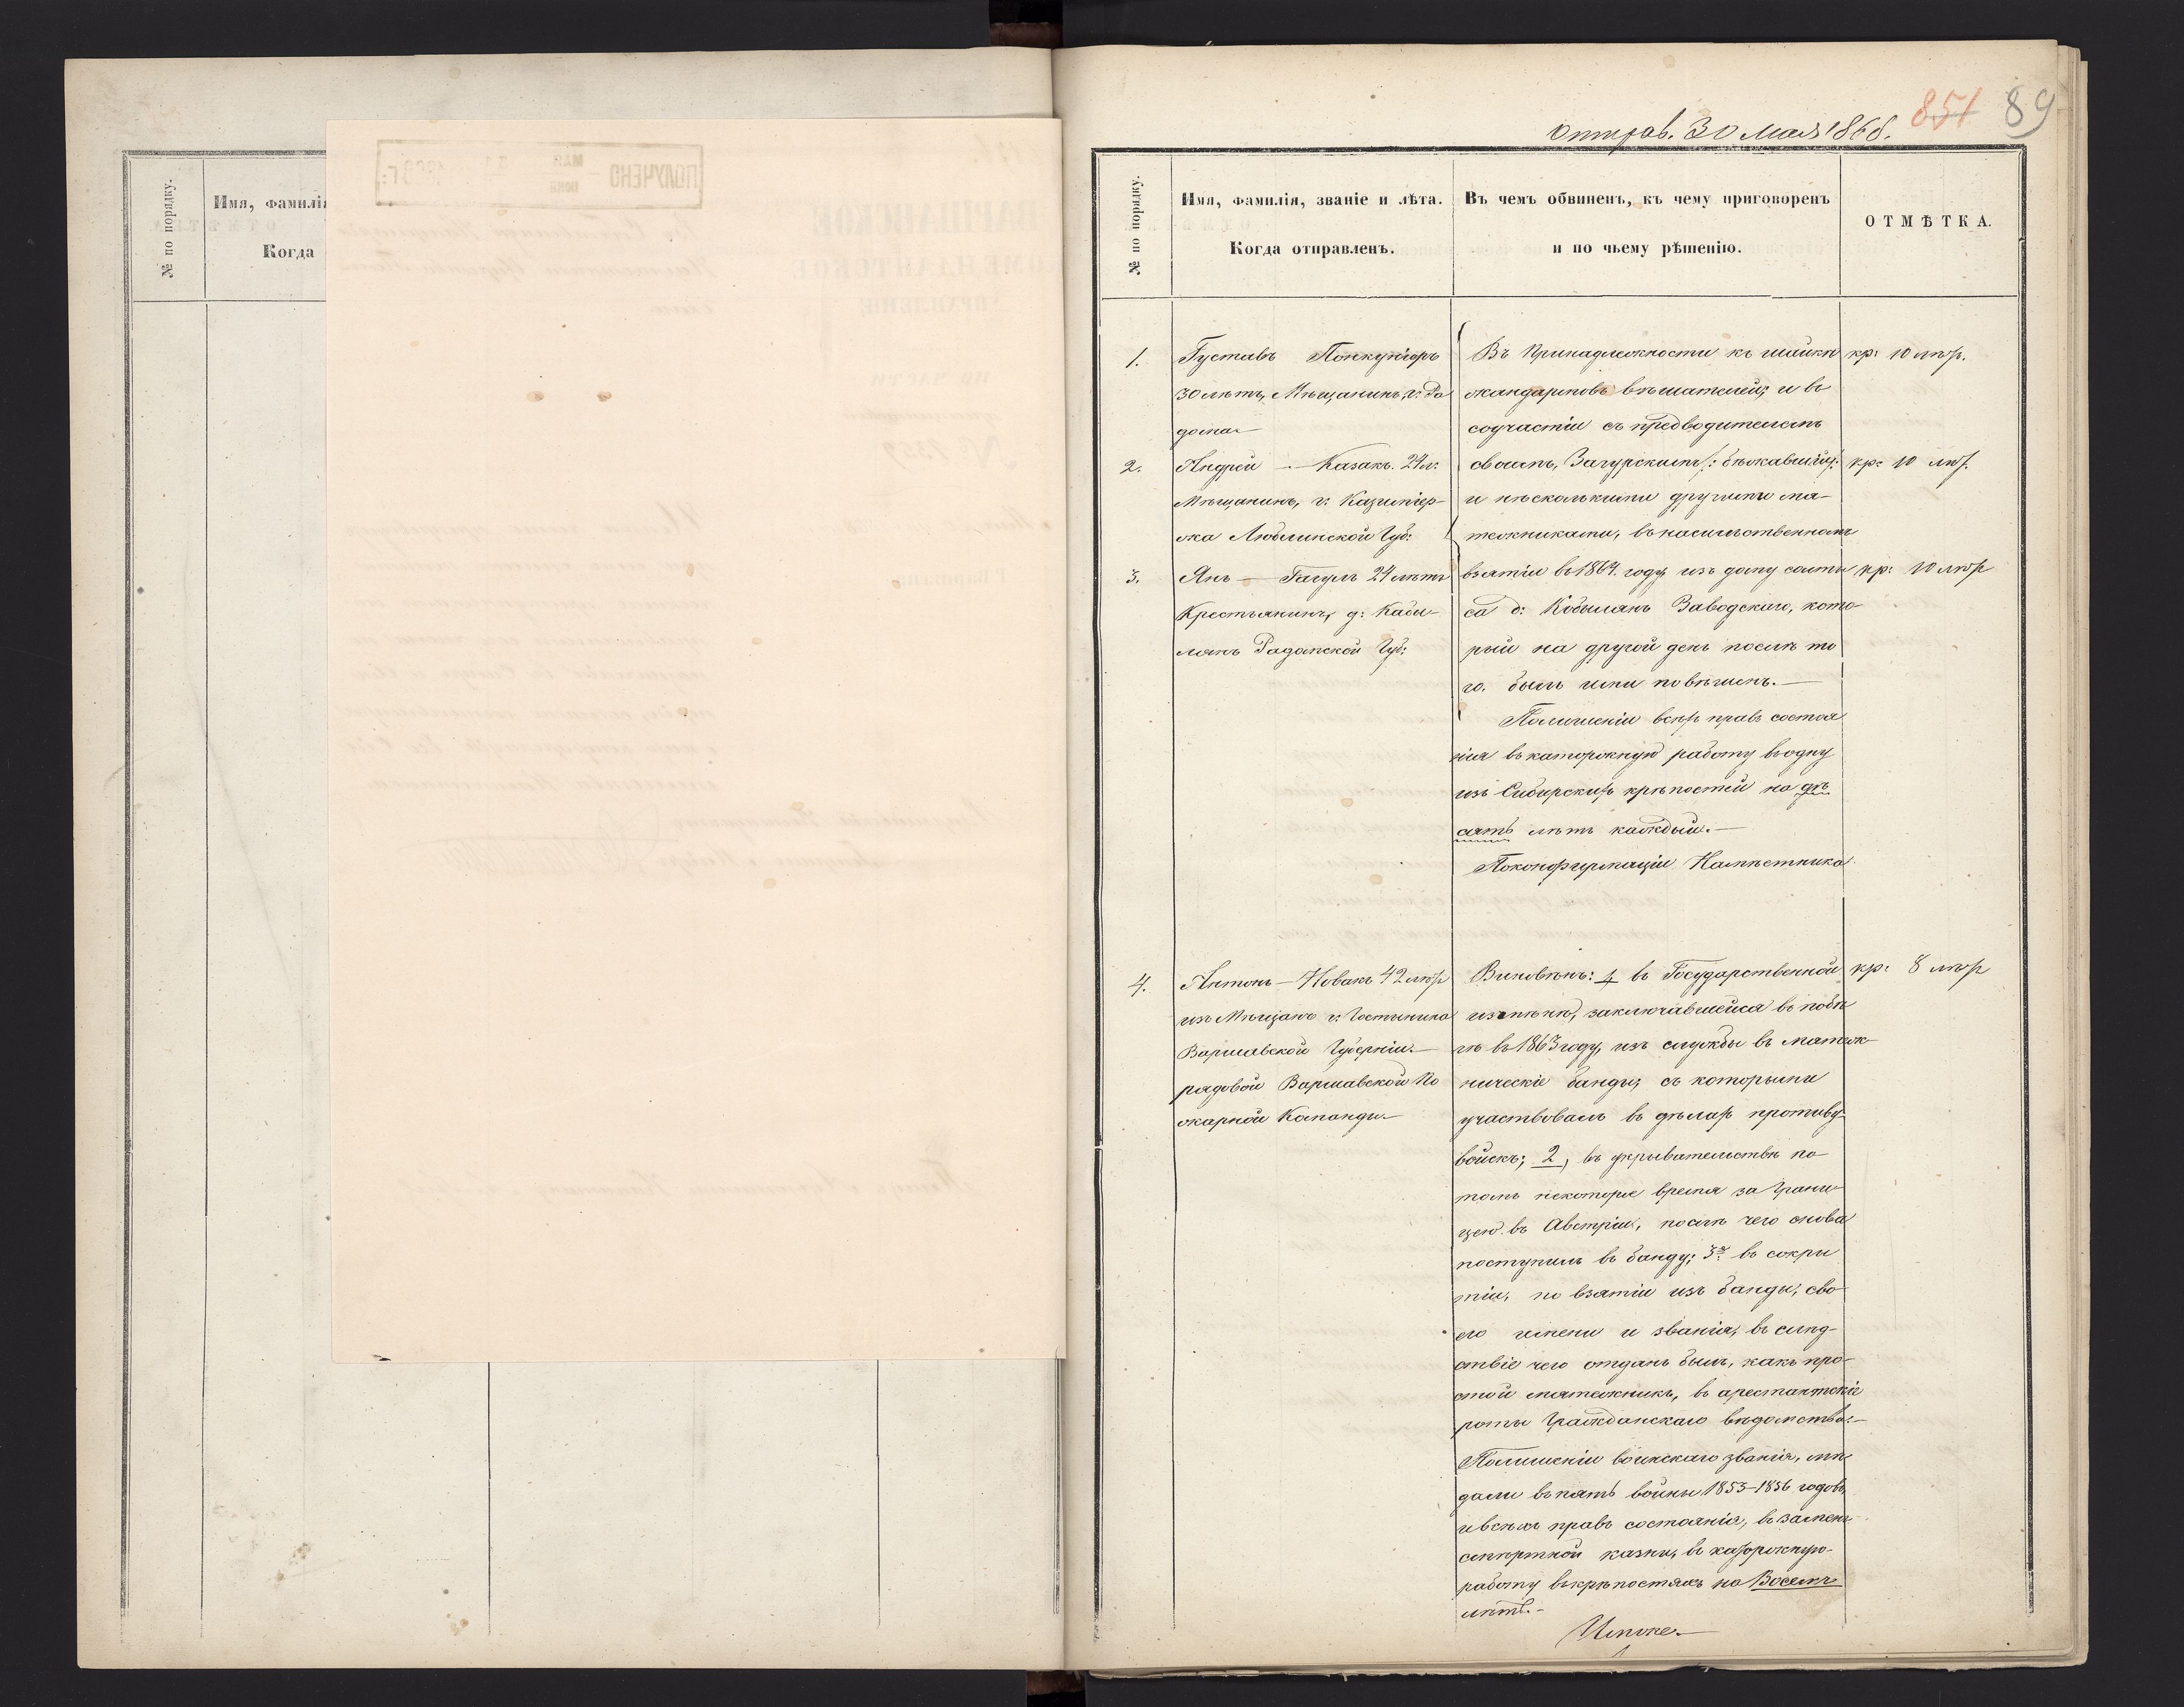 № по порядку.
Имя, фамилія
Когда
ПОЛУЧЕНО
851 89
Отправ. 30 Мая 1868.
№ по порядку.
Имя, фамилія, званіе и лѣта.
Когда отправленъ.
Въ чемъ обвиненъ, къ чему приговоренъ
и по чьему рѣшенію.
ОТМѢТКА.
1.
Густавъ
30 лѣтъ, Мѣщанинъ, г: Ра
дома
2.
Андрей — Казакъ. 24 л:
Мѣщанинъ, г: Казимер-
жа Люблинской Губ:
3.
Янъ — Гагулъ 24 лѣтъ
Крестьянинъ, д: Кобы-
лянъ Радомской Губ:
Въ принадлежности къ шайкѣ
жандармовъ вѣшателей, и въ
соучастіи съ предводителемъ
своимъ, Загурскимъ /: бѣжавшій :/
и нѣсколькими другими мя-
тежниками, въ насильственномъ
взятіи въ 1864. году, изъ дому солты
са д: Кобылянъ Заводскаго, кото-
рый на другой день послѣ то
го. былъ ими повѣшенъ.—
По лишеніи всѣхъ правъ состоя
нія въ каторжную работу въ одну
изъ Сибирскихъ крѣпостей на де
сять лѣтъ каждый.—
По конфирмаціи Намѣстника
кр: 10 лѣт.
кр: 10 лѣт.
кр: 10 лѣт
4.
Антонъ — Новакъ 42 лѣт
изъ Мѣщанъ г: Гостынина
Варшавской Губерніи.—
рядовой Варшавской По
жарной Команды.—
Виновенъ: 1, въ Государственной
измѣнѣ, заключавшейся въ побѣ
гѣ въ 1863 году, изъ службы въ мятеж-
ническіе банды, съ которыми
участвовалъ въ дѣлахъ противу-
войскъ; 2, въ укрывательствѣ по
томъ некоторое время за Грани-
цею въ Австріи, послѣ чего снова
поступилъ въ банду; 3е въ сокры
тіи, по взятіи изъ банды, сво-
его имени и званія, въ слѣд-
ствіе чего отданъ былъ, какъ про-
стой мятежникъ, въ арестантскіе
роты Гражданскаго вѣдомства.—
По лишеніи воинскаго званія, ме
дали въ пять войны 1853–1856 годовъ,
и всѣхъ правъ состоянія, въ замѣнъ
смертной казни, въ каторжную-
работу въ крѣпостяхъ на Восемь
лѣтъ.—
Имже.—
кр: 8 лѣт